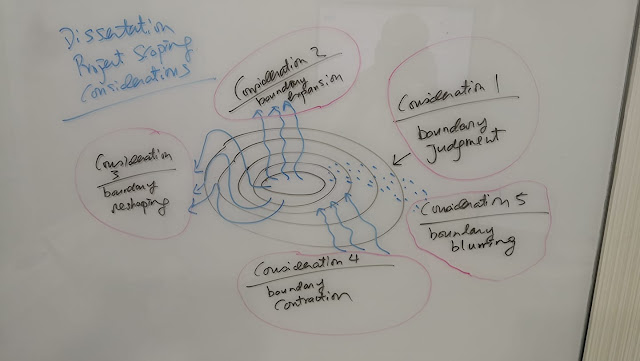 Dissertation
Project Scoping
Considerations
Consideration 2
boundary
expansion
Consideration 1
boundary
judgment
Consideration
3
boundary
reshaping
Consideration 5
boundary
blurring
Consideration 4
boundary
contraction